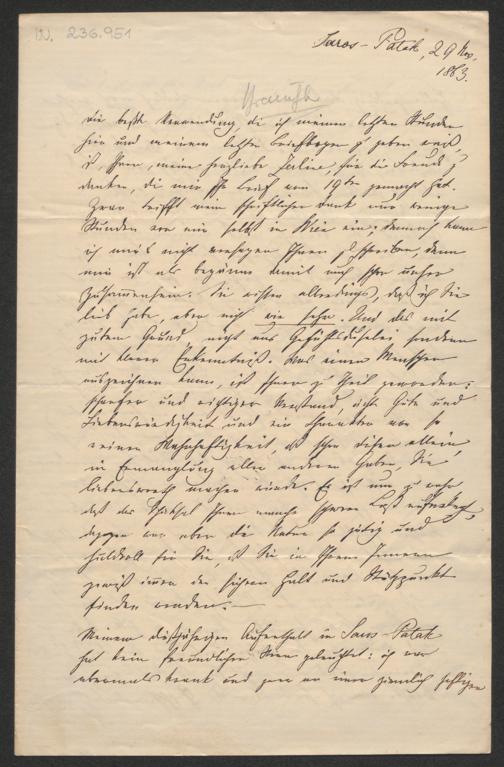 IN. 236.951
Saros-Patak, 29 Nov.
1883.
Die beste Verwendung, die ich meinen letzten Stunden
hier und meinem letzten Briefbogen zu geben weiß,
ist, Ihnen, meine herzliebe für die Freude zu
danken, die mir Ihr Brief vom 19ten gemacht hat.
Zwar trifft mein schriftlicher Dank nur wenige
Stunden vor mir selbst in Wien ein; dennoch kann
ich mir's nicht versagen Ihnen zu schreiben, denn
mir ist als begänne damit auch schon unser
Zusammensein. Sie wissen allerdings, daß ich Sie
lieb habe, aber nicht wie sehr. Und das mit
gutem Grund, nicht aus Gefühlsduselei sondern
mit klarer Erkenntniß. Was einen Menschen
auszeichnen kann, ist Ihnen zu Theil geworden:
scharfer und richtiger Verstand, echte Güte und
Liebenswürdigkeit und ein Charakter von so
reiner Wahrhaftigkeit, daß schon dieser allein,
in Ermanglung aller anderen Gaben, Sie
liebenswerth machen würde. Es ist nur zu wahr
daß das Schicksal Ihnen manche schwere Last auferlegt,
dagegen war aber die Natur so gütig und
huldvoll für Sie, daß Sie in Ihrem Inneren
gewiß immer den sichern Halt und Stützpunkt
finden werden. —
Meinem dießjährigen Aufenthalt in Saros-Patak
hat kein freundlicher Stern geleuchtet: ich war
abermals krank und zwar an einer ziemlich